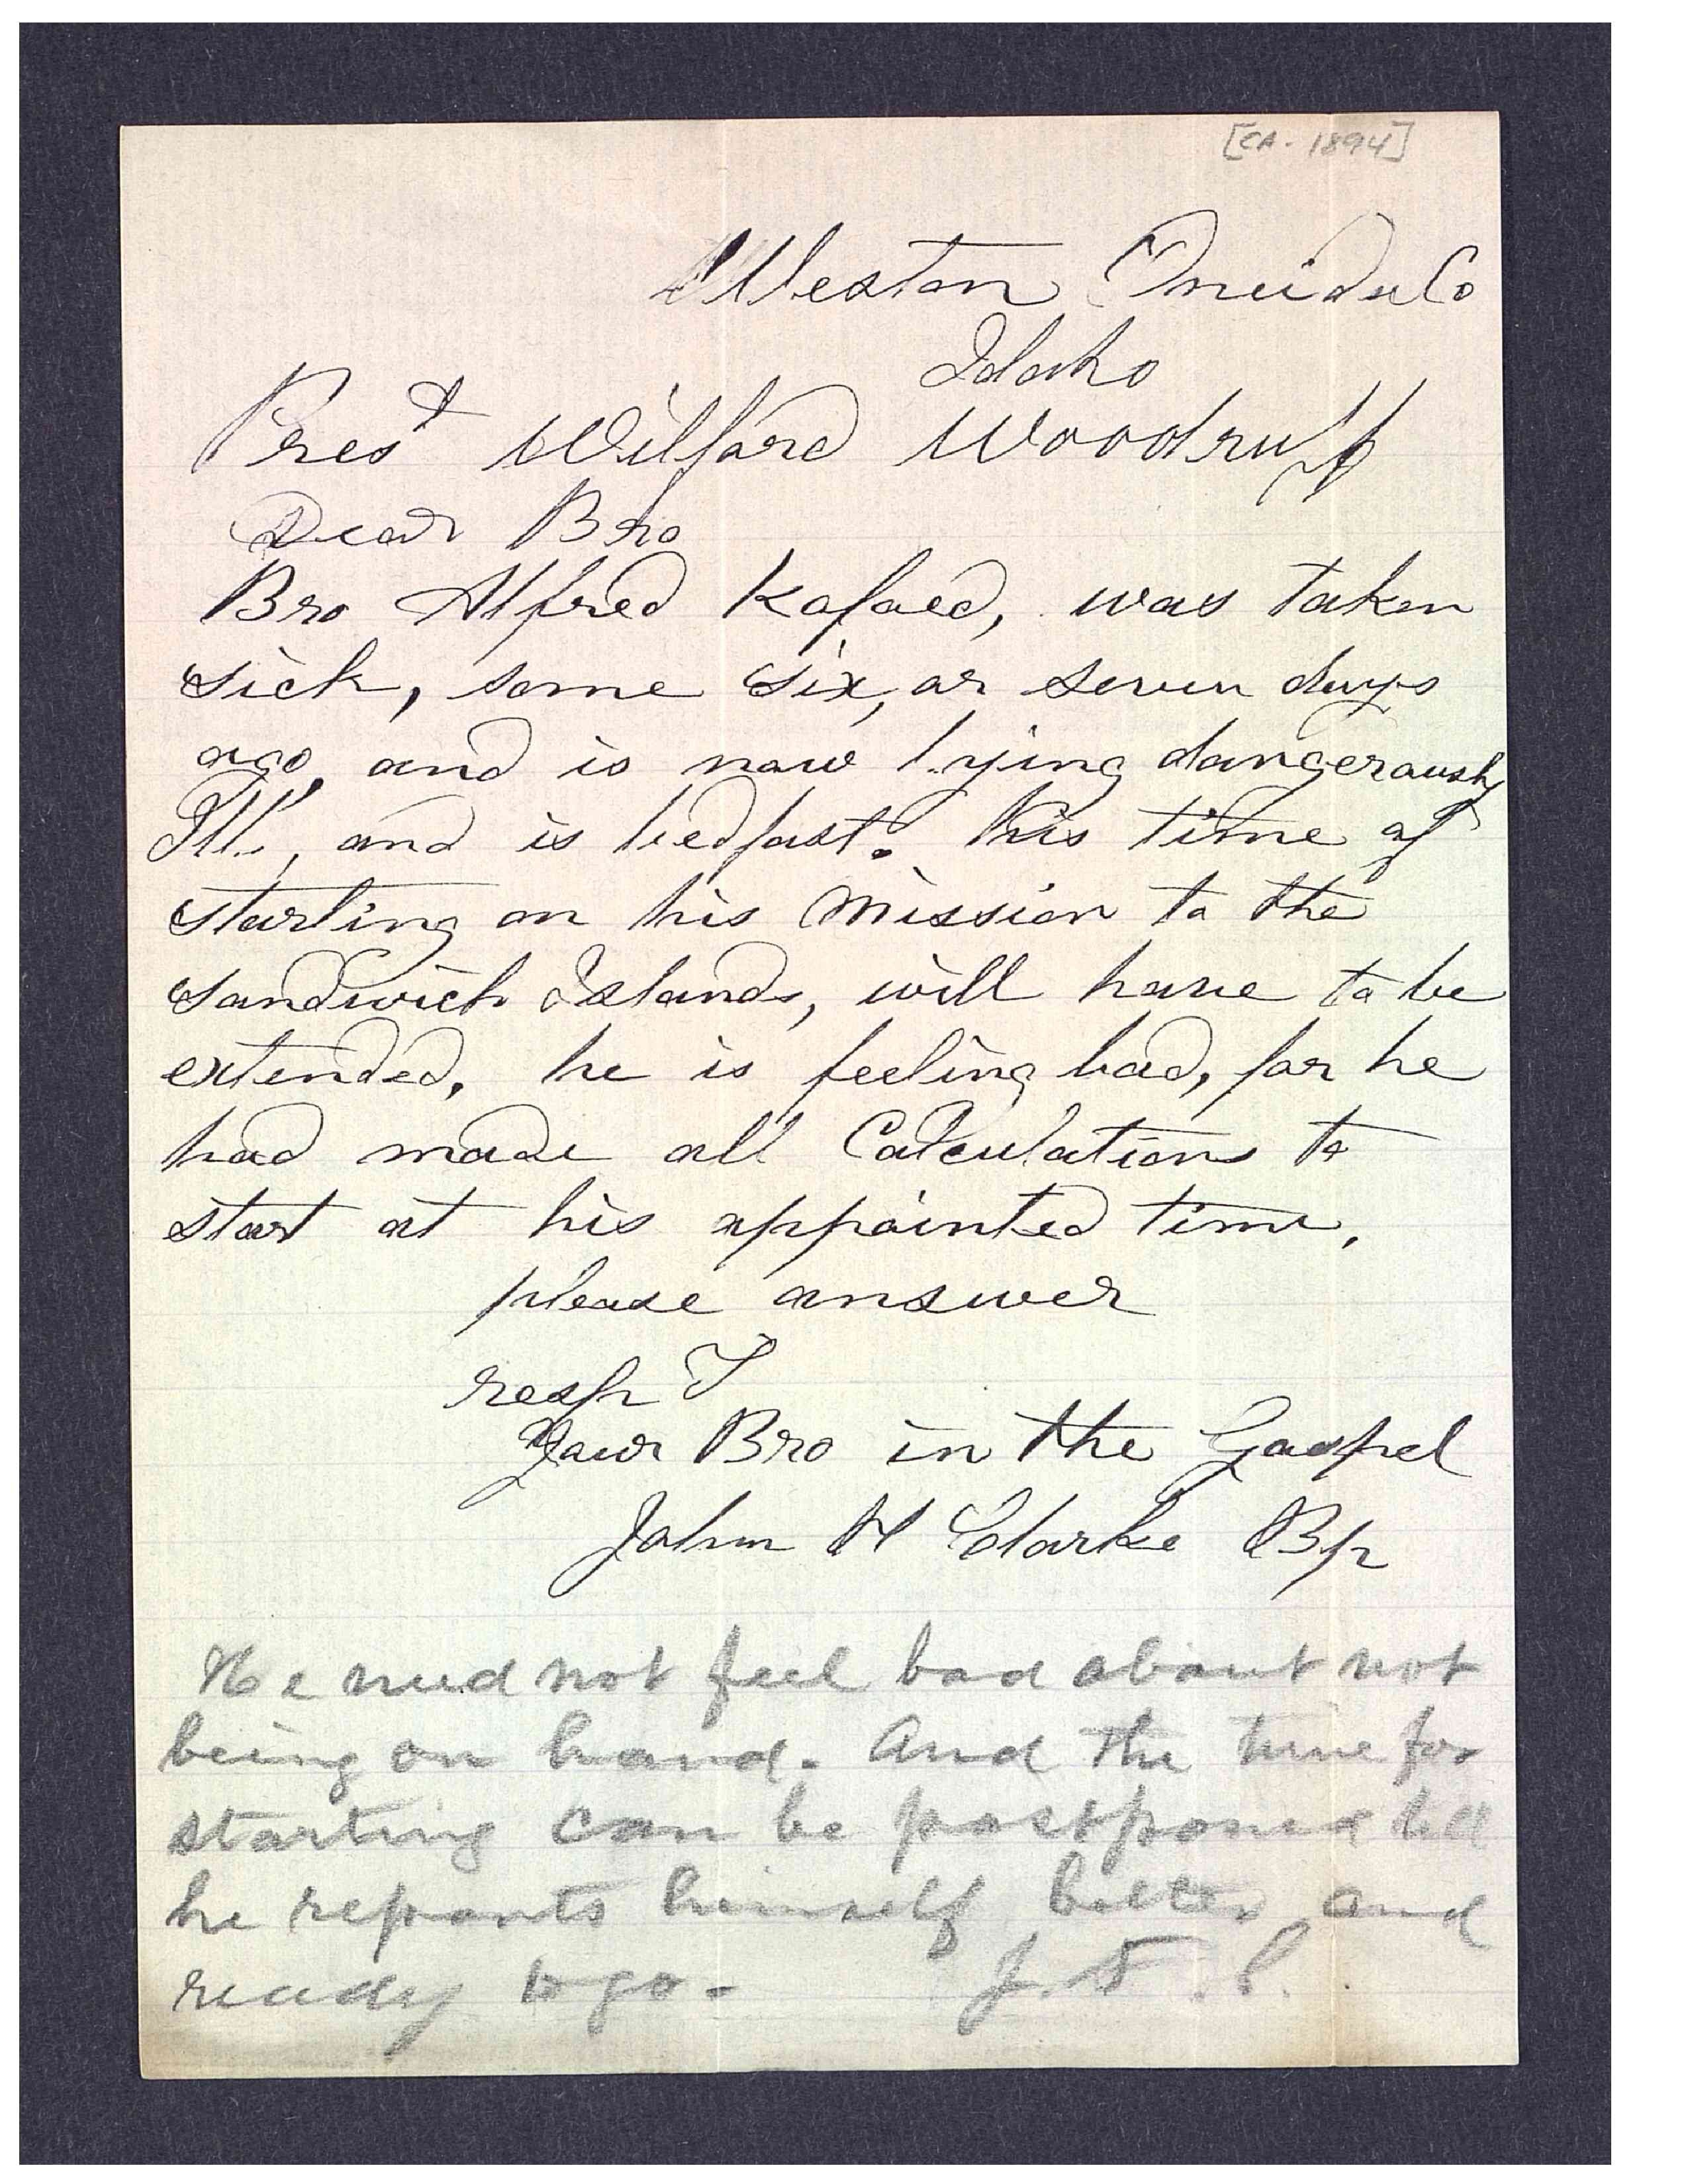 [CA. 1894]
Weston Oneida Co
Idaho
Prest Wilford Woodruff
Dear Bro
Bro Alfred Kafoed, was taken
sick, some six, or seven days
ago, and is now lying dangerously
Ill, and is bedfast. his time of
starting on his mission to the
Sandwich Islands, will have to be
extended, he is feeling bad, for he
had made all Calculations to
start at his appointed time,
please answer
resp
Your Bro in the Gospel
John H Clarke Bp
He need not feel bad about not
being on hand. And the time for
starting can be postponed till
he reports himself better and
ready to go.